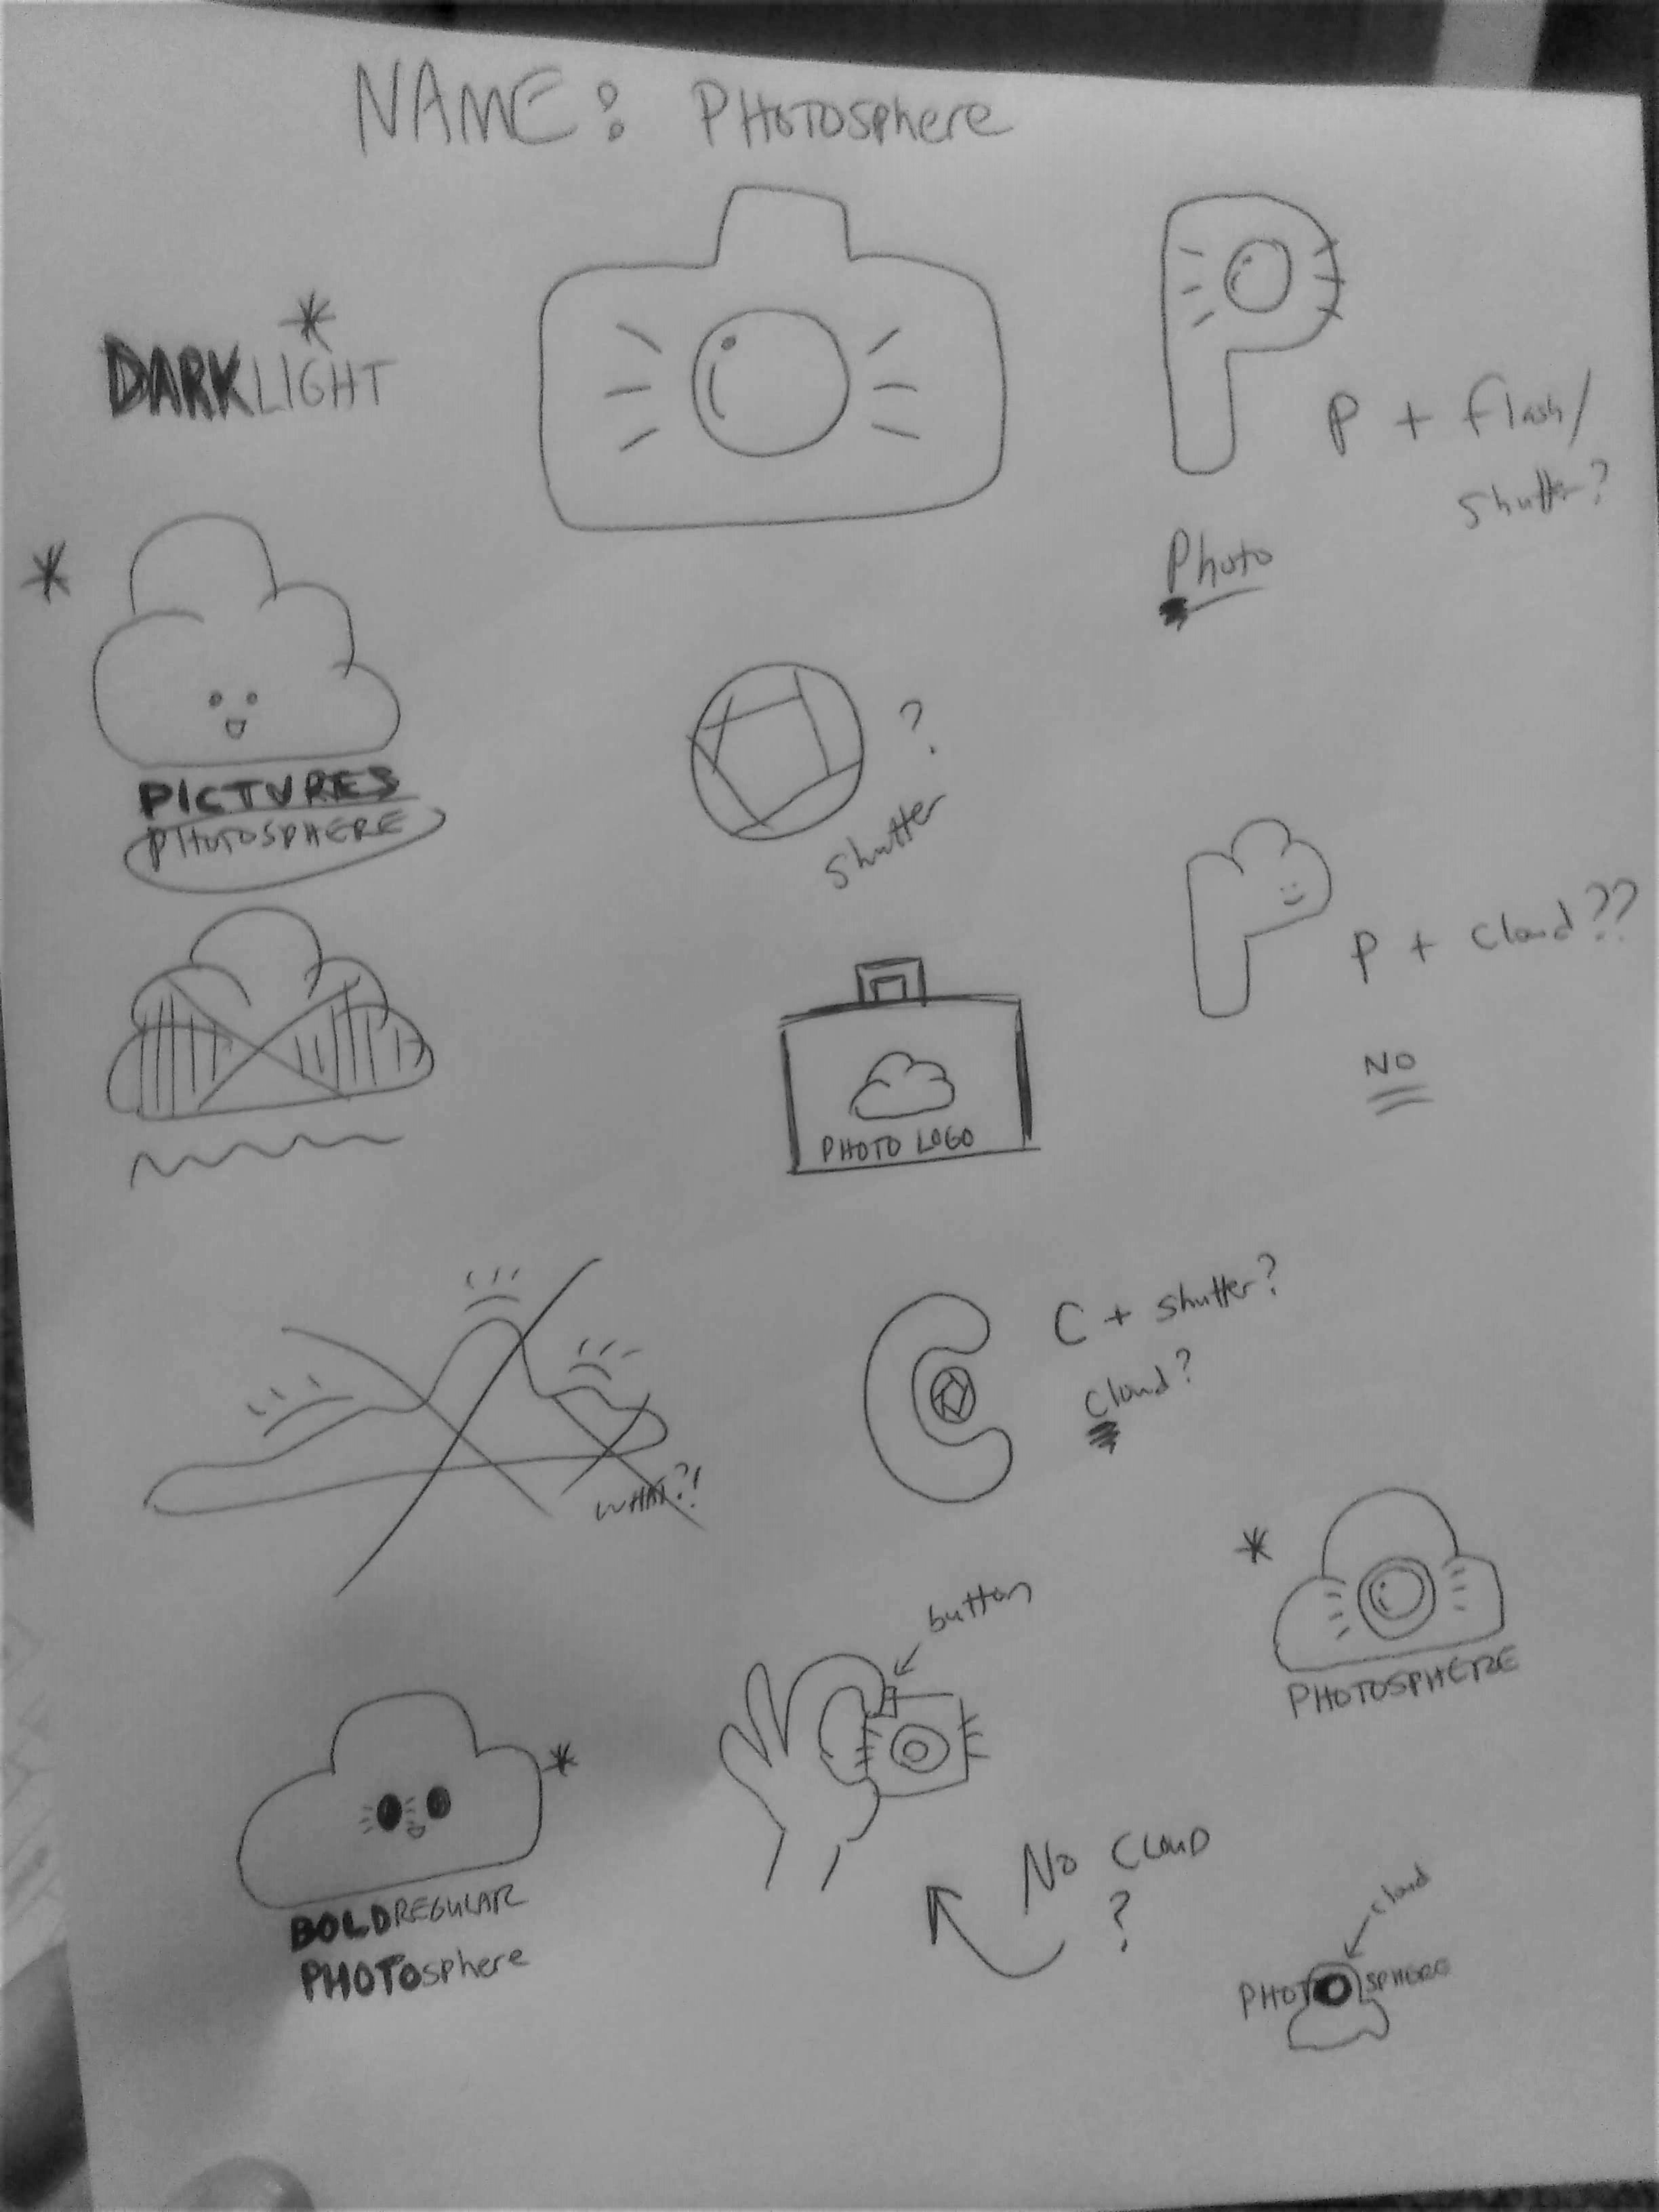 NAME: PHOTOSphere
DARKLIGHT
P + flash/
shutter?
Photo
PICTURES
PHOTOSPHERE
?
shutter
P + cloud??
NO
PHOTO LOGO
C + shutter?
cloud?
WHAT?!
PHOTOSPHERE
button
BOLDREGULAR
PHOTOsphere
NO CLOUD
?
cloud
PHOTOSPHERE